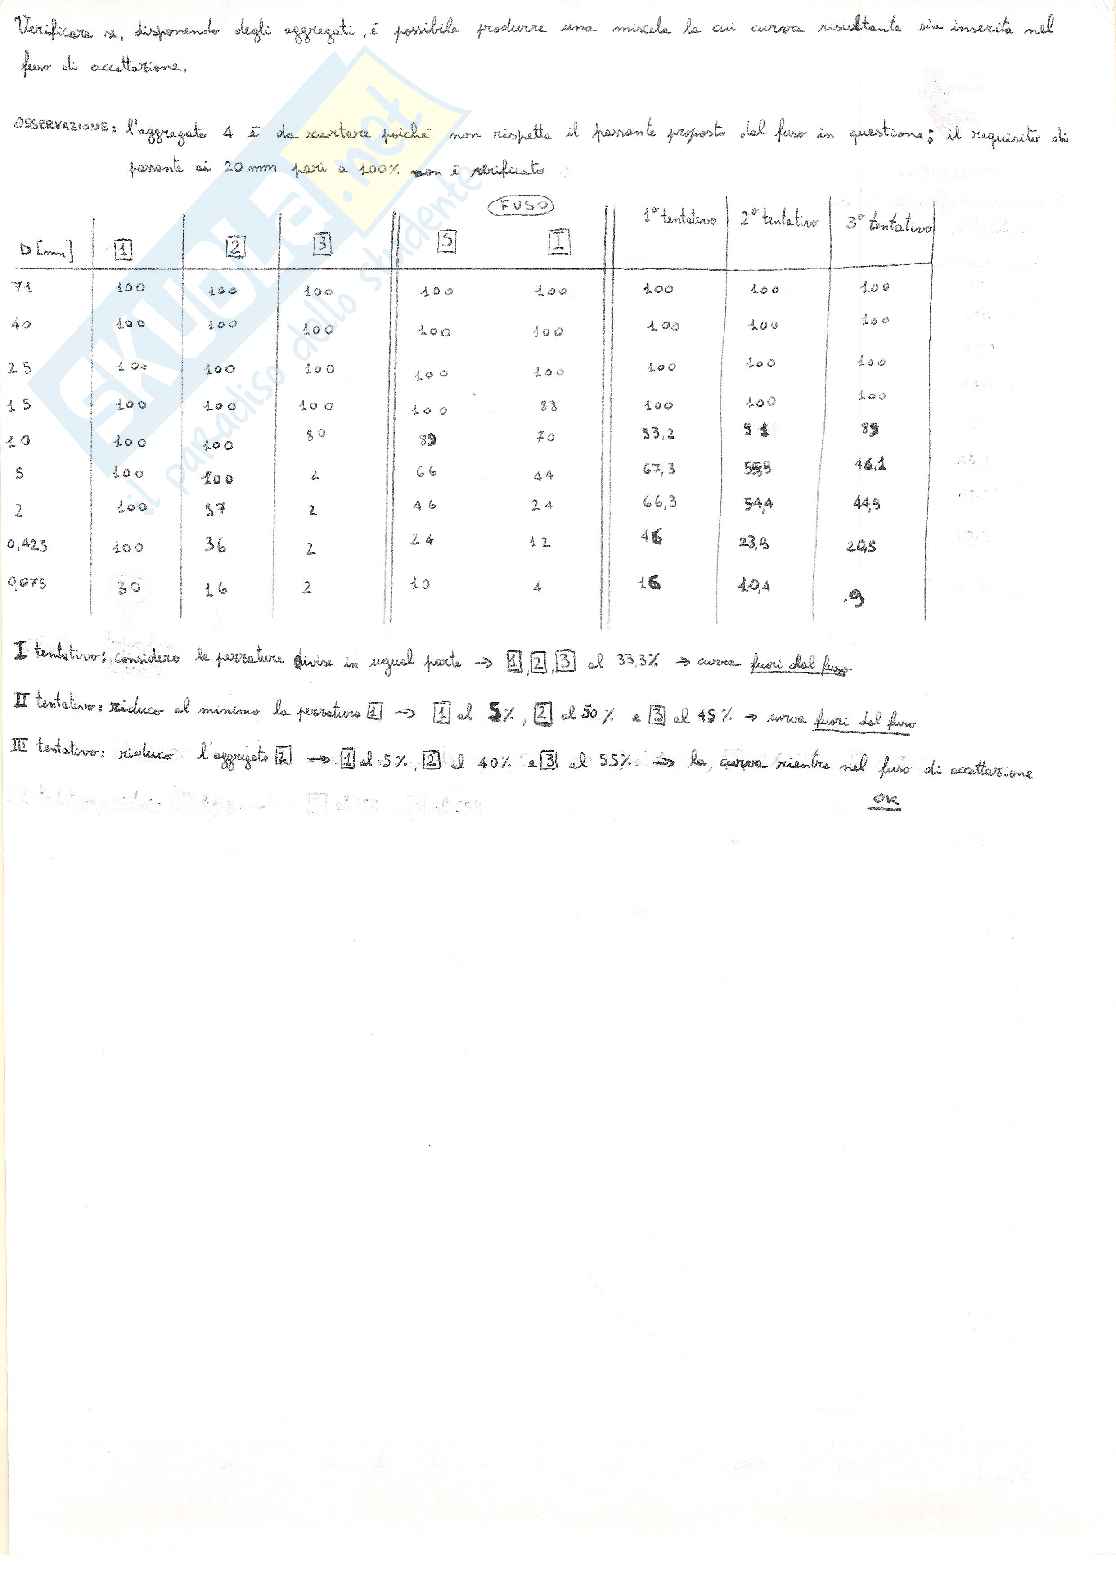 Verificare se, disponendo degli aggregati, è possibile produrre una miscela la cui curva risultante sia inserita nel
fuso di accettazione.
OSSERVAZIONE: l'aggregato 4 è da scartare poiché non rispetta il passante proposto dal fuso in questione; il requisito di
passante ai 20 mm pari a 100% non è verificato
SKUOLA.net
il paradiso dello studente
FUSO
D [mm] 1 2 3 S I 1° tentativo 2° tentativo 3° tentativo
71 100 100 100 100 100 100 100 100
40 100 100 100 100 100 100 100 100
25 100 100 100 100 100 100 100 100
15 100 100 100 100 88 100 100 100
10 100 100 80 89 70 93,2 91 89
5 100 100 2 66 44 67,3 46,1
2 100 97 2 46 24 66,3 54,4 44,9
0,425 100 36 2 24 12 46 23,9 20,5
0,075 30 16 2 10 4 16 10,4 9
I tentativo: considero le pezzature divise in ugual parte → 1, 2, 3 al 33,3% → curva fuori dal fuso
II tentativo: riduco al minimo la pezzatura 1 → 1 al 5%, 2 al 50% e 3 al 45% → curva fuori dal fuso
III tentativo: riduco l'aggregato 2 → 1 al 5%, 2 al 40% e 3 al 55% → la curva rientra nel fuso di accettazione
OK